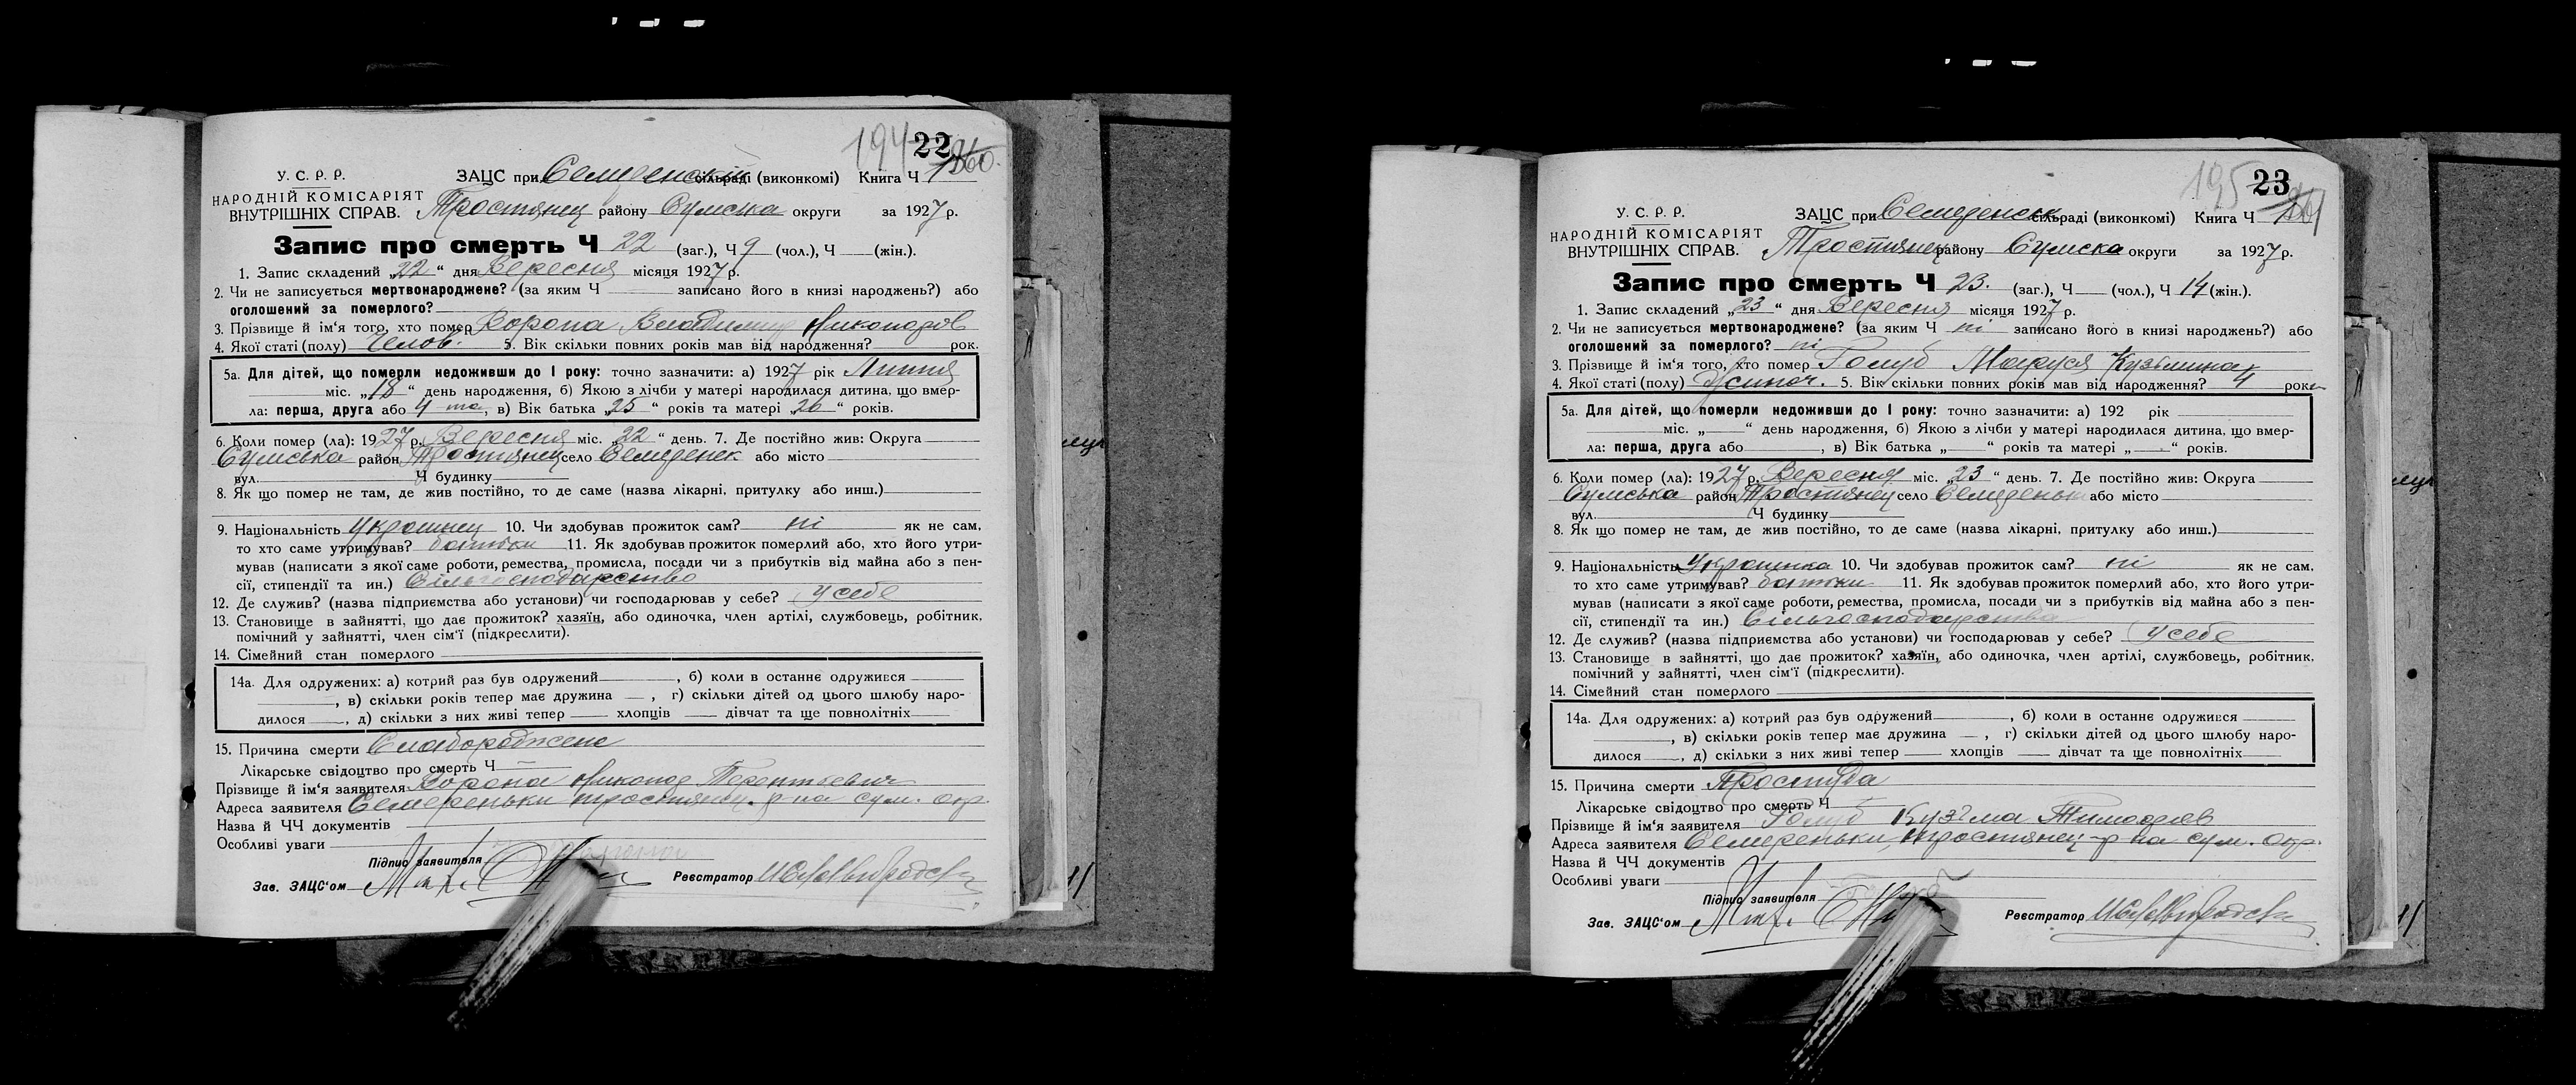 194 22
У. С. Р. Р.
НАРОДНІЙ КОМІСАРІЯТ
ВНУТРІШНІХ СПРАВ.
ЗАЦС при сільраді (виконкомі) Книга Ч 1
Тростянец району Сумська округи за 1927 р.
Запис про смерть Ч 22 (заг.), Ч 9 (чол.), Ч (жін.).
1. Запис складений „22“ дня Вересня місяця 1927 р.
2. Чи не записується мертвонароджене? (за яким Ч записано його в книзі народжень?) або
оголошений за померлого?
3. Прізвище й ім‘я того, хто помер Ворона Владимир Никоноров
4. Якої статі (полу) Челов. 5. Вік скільки повних років мав від народження? рок.
5а. Для дітей, що померли недоживши до 1 року: точно зазначити: а) 1927 рік Липня
міс. „18“ день народження, б) Якою з лічби у матері народилася дитина, що вмер-
ла: перша, друга або 4 та, в) Вік батька „25“ років та матері „26“ років.
6. Коли помер (ла): 1927 р. Вересня міс. „22“ день. 7. Де постійно жив: Округа
Сумська район Тростянец село або місто
вул. Ч будинку
8. Як що помер не там, де жив постійно, то де саме (назва лікарні, притулку або инш.)
9. Національність Украинец 10. Чи здобував прожиток сам? ні як не сам,
то хто саме утримував? батьки 11. Як здобував прожиток померлий або, хто його утри-
мував (написати з якої саме роботи, ремества, промисла, посади чи з прибутків від майна або з пен-
сії, стипендії та ин.) Сільгосподарство
12. Де служив? (назва підприємства або установи) чи господарював у себе? у себе
13. Становище в зайнятті, що дає прожиток? хазяїн, або одиночка, член артілі, службовець, робітник,
помічний у зайнятті, член сім‘ї (підкреслити).
14. Сімейний стан померлого
14а. Для одружених: а) котрий раз був одружений , б) коли в останнє одружився
, в) скільки років тепер має дружина , г) скільки дітей од цього шлюбу наро-
дилося , д) скільки з них живі тепер хлопців дівчат та ще повнолітніх
15. Причина смерти Слаборожденс
Лікарське свідоцтво про смерть Ч
Прізвище й ім‘я заявителя Ворона Никонор Терентьевич
Адреса заявителя Семереньки тростянец. р-на сум. окр.
Назва й ЧЧ документів
Особливі уваги
Підпис заявителя
Зав. ЗАЦС‘ом Реєстратор
195 23
У. С. Р. Р.
НАРОДНІЙ КОМІСАРІЯТ
ВНУТРІШНІХ СПРАВ.
ЗАЦС при сільраді (виконкомі) Книга Ч 1
Тростянец району Сумска округи за 1927 р.
Запис про смерть Ч 23. (заг.), Ч (чол.), Ч 14 (жін.).
1. Запис складений „23“ дня Вересня місяця 1927 р.
2. Чи не записується мертвонароджене? (за яким Ч ні записано його в книзі народжень?) або
оголошений за померлого? ні
3. Прізвище й ім‘я того, хто помер Голуб Маруся Кузьминна
4. Якої статі (полу) Жиноч. 5. Вік скільки повних років мав від народження? 4 роки
5а. Для дітей, що померли недоживши до 1 року: точно зазначити: а) 192 рік
міс. „ “ день народження, б) Якою з лічби у матері народилася дитина, що вмер-
ла: перша, друга або , в) Вік батька „ “ років та матері „ “ років.
6. Коли помер (ла): 1927 р. Вересня міс. „23“ день. 7. Де постійно жив: Округа
Сумська район Тростянец село або місто
вул. Ч будинку
8. Як що помер не там, де жив постійно, то де саме (назва лікарні, притулку або инш.)
9. Національність Украинка 10. Чи здобував прожиток сам? ні як не сам,
то хто саме утримував? батьки 11. Як здобував прожиток померлий або, хто його утри-
мував (написати з якої саме роботи, ремества, промисла, посади чи з прибутків від майна або з пен-
сії, стипендії та ин.) Сільгосподарства
12. Де служив? (назва підприємства або установи) чи господарював у себе? у себе
13. Становище в зайнятті, що дає прожиток? хазяїн, або одиночка, член артілі, службовець, робітник,
помічний у зайнятті, член сім‘ї (підкреслити).
14. Сімейний стан померлого
14а. Для одружених: а) котрий раз був одружений , б) коли в останнє одружився
, в) скільки років тепер має дружина , г) скільки дітей од цього шлюбу наро-
дилося , д) скільки з них живі тепер хлопців дівчат та ще повнолітніх
15. Причина смерти Простуда
Лікарське свідоцтво про смерть Ч
Прізвище й ім‘я заявителя Голуб Кузьма Тимофеев
Адреса заявителя Семереньки, тростянец р-на сум. окр.
Назва й ЧЧ документів
Особливі уваги
Підпис заявителя
Зав. ЗАЦС‘ом Реєстратор